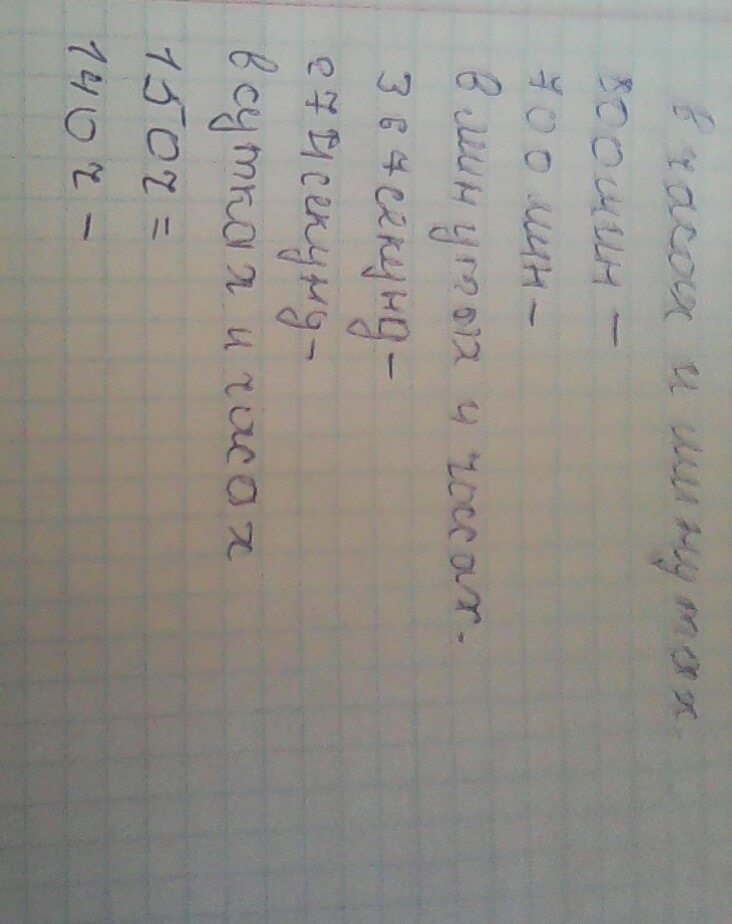 в часах и минутах
800 мин -
700 мин -
в минутах и чассах.
364 секунд -
274 секунд -
в сутках и часах
150 ч =
140 ч -